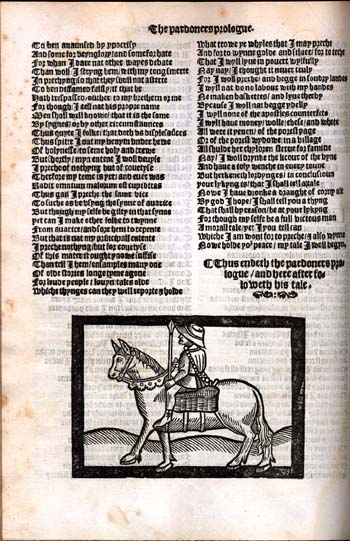 The pardoners prologue.
To ben auaunced by ypocrisy
And some for veynglory/ and some for hate
For whan I dare nat other wayes debate
Than woll I styng hem/ with my tonge smerte
In prechyng/ so that they shall nat asterte
To ben deffamed falsly/ if that he
Hath trespassed to my brethern or me
For though I tell nat his propre name
Men shall well knowe that it is the same
By sygnes/ or by other circumstaunces
Thus quyte I folke/ that doth vs displesaunces
Thus spitte I out my venym vnder hewe
Of holynesse/ to seme holy and trewe
But shortly myn entent I woll deuyse
I preche of nothyng but of couetyse
Therfore my teme is yet/ and euer was
Radix omnium malorum est cupiditas
Thus can I preche the same vice
To suche as be vsyng the synne of auarice
But though my selfe be gylty in that synne
yet can I make other folke to twynne
From auarice/ and sore hem to repente
But that is nat my principall entente
I preche nothyng but for couetyse
Of this matere it ought ynowe suffise
Than tell I hem ensamples many one
Of olde stories longe tyme agone
For leude people louyn tales olde
Which thynges can they well reporte & holde
What trowe ye whyles that I may preche
And for to wynne golde and siluer for to teche
That I wyll lyue in pouert wylfully
Nay nay/ I thought it neuer truly
For I woll preche/ and begge in sondry londes
I wyll nat do no labour with my handes
Ne maken baskettes/ and lyue therby
Bycause I woll nat begge ydelly
I wyll none of the apostles counterfete
I wyll haue money/ wolle/ chese/ and whete
All were it yeuen of the porest page
Or of the porest wydowe in a village
All shulde her chyldren sterue for famine
Nay/ I woll drynke the licour of the vyne
And haue a ioly wenche in euery toune
But herkeneth lordynges/ in conclusioun
your lykyng is/ that I shall tell a tale
Nowe I haue dronke a draught of corny ale
By god I hope/ I shall tell you a thyng
That shall by reason/ be at your lykyng
For though my selfe be a full vicious man
A morall tale/ yet I you tell can
Which I am wont for to preche/ for to wynne
Nowe holde yo peace/ my tale I woll begyn.
¶Thus endeth the pardoners pro=
logue/ and here after fo=
loweth his tale.